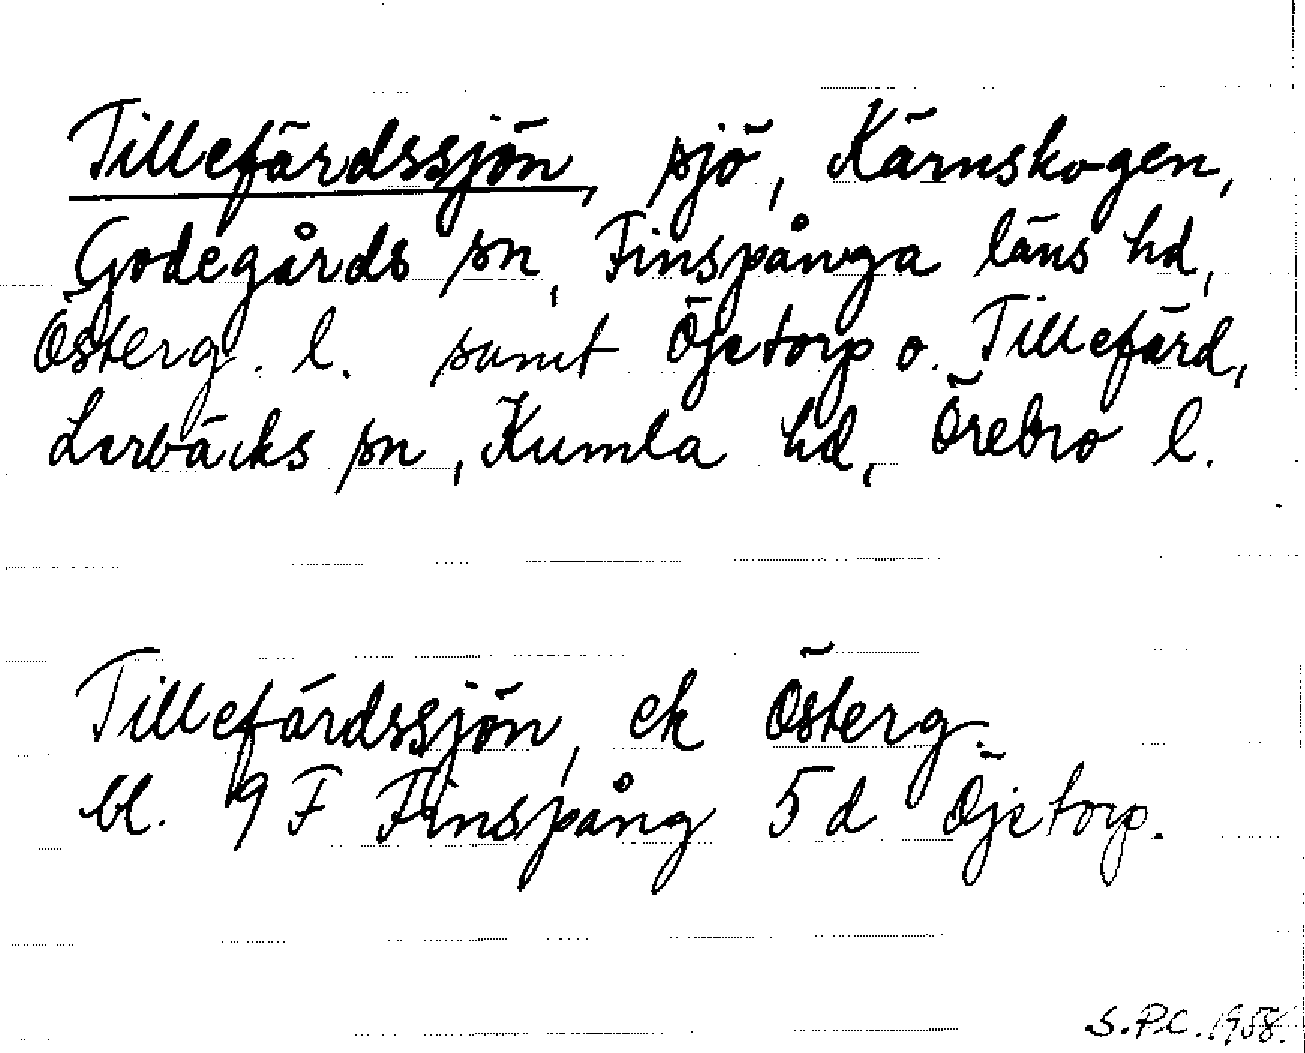 Tillefärdssjön, sjö, Kärnskogen,
Godegårds sn, Finspånga läns hd,
Österg. l. samt Öjetorp o. Tillefärd,
Lerbäcks sn, Kumla hd, Örebro l.
Tillefärdssjön, ek Österg.
bl. 9 F Finspång 5 d Öjetorp.
S.P.C. 1958.